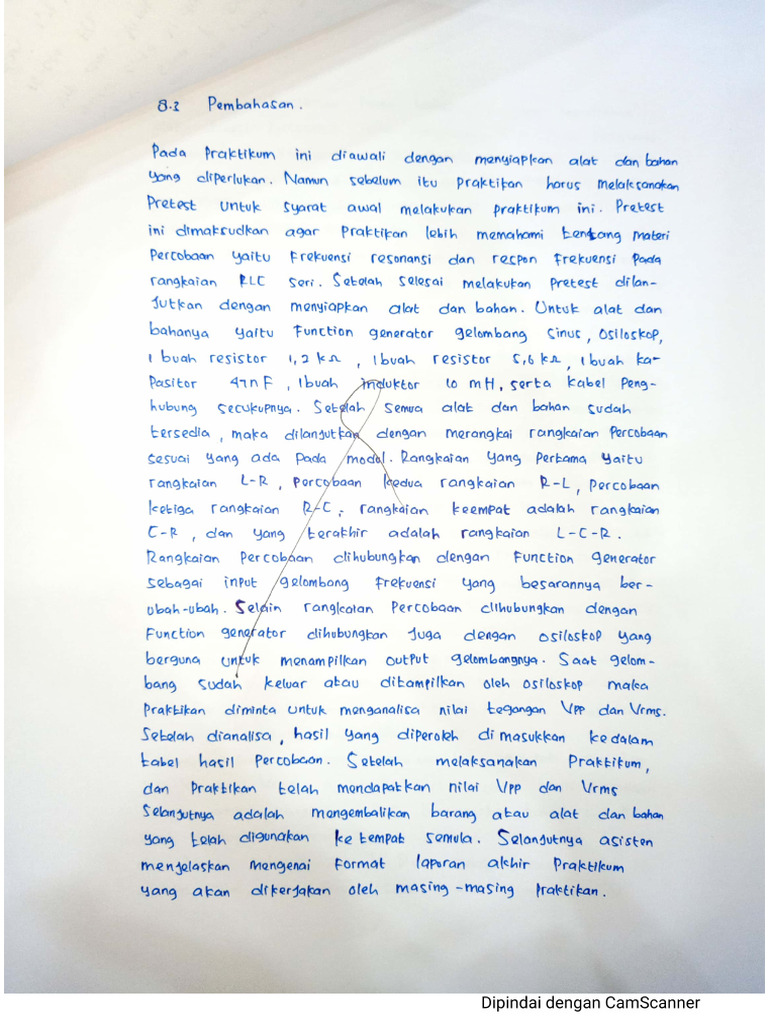 8.3 Pembahasan.
Pada Praktikum ini diawali dengan menyiapkan alat dan bahan
yang diperlukan. Namun sebelum itu Praktikan harus melaksanakan
Pretest untuk syarat awal melakukan praktikum ini. Pretest
ini dimaksudkan agar Praktikan lebih memahami tentang materi
Percobaan yaitu Frekuensi resonansi dan respon Frekuensi Pada
rangkaian RLC seri. Setelah selesai melakukan Pretest dilan-
Jutkan dengan menyiapkan alat dan bahan. Untuk alat dan
bahanya yaitu Function generator gelombang sinus, Osiloskop,
1 buah resistor 1,2 kΩ, 1 buah resistor 5,6 kΩ, 1 buah ka-
Pasitor 47nF, 1buah induktor 10 mH, serta kabel Peng-
hubung secukupnya. Setelah semua alat dan bahan sudah
tersedia, maka dilanjutkan dengan merangkai rangkaian Percobaan
sesuai yang ada pada modol. Rangkaian yang Pertama yaitu
rangkaian L-R, Percobaan kedua rangkaian R-L, Percobaan
ketiga rangkaian R-C, rangkaian keempat adalah rangkaian
C-R, dan yang terakhir adalah rangkaian L-C-R.
Rangkaian Percobaan dihubungkan dengan Function generator
sebagai input gelombang Frekuensi yang besarannya ber-
ubah-ubah. Selain rangkaian Percobaan dihubungkan dengan
Function generator dihubungkan Juga dengan osiloskop yang
berguna untuk menampilkan output gelombangnya. Saat gelom-
bang sudah keluar atau ditampilkan oleh osiloskop maka
Praktikan diminta untuk menganalisa nilai tegangan Vpp dan Vrms.
Setelah dianalisa, hasil yang diperoleh di masukkan kedalam
tabel hasil Percobaan. Setelah melaksanakan Praktikum,
dan Praktikan telah mendapatkan nilai Vpp dan Vrms
Selanjutnya adalah mengembalikan barang atau alat dan bahan
yang telah digunakan ke tempat semula. Selanjutnya asisten
menjelaskan mengenai Format laporan akhir Praktikum
yang akan dikerjakan oleh masing-masing Praktikan.
Dipindai dengan CamScanner